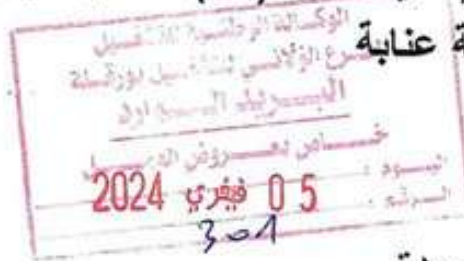 ة عنابة
الوكالة الوطنية للتشغيل
الفرع الولائي للتشغيل بورقلة
البريد الوارد
خاص بعروض العمل
اليوم :
05 فيفري 2024
الرقم :
301